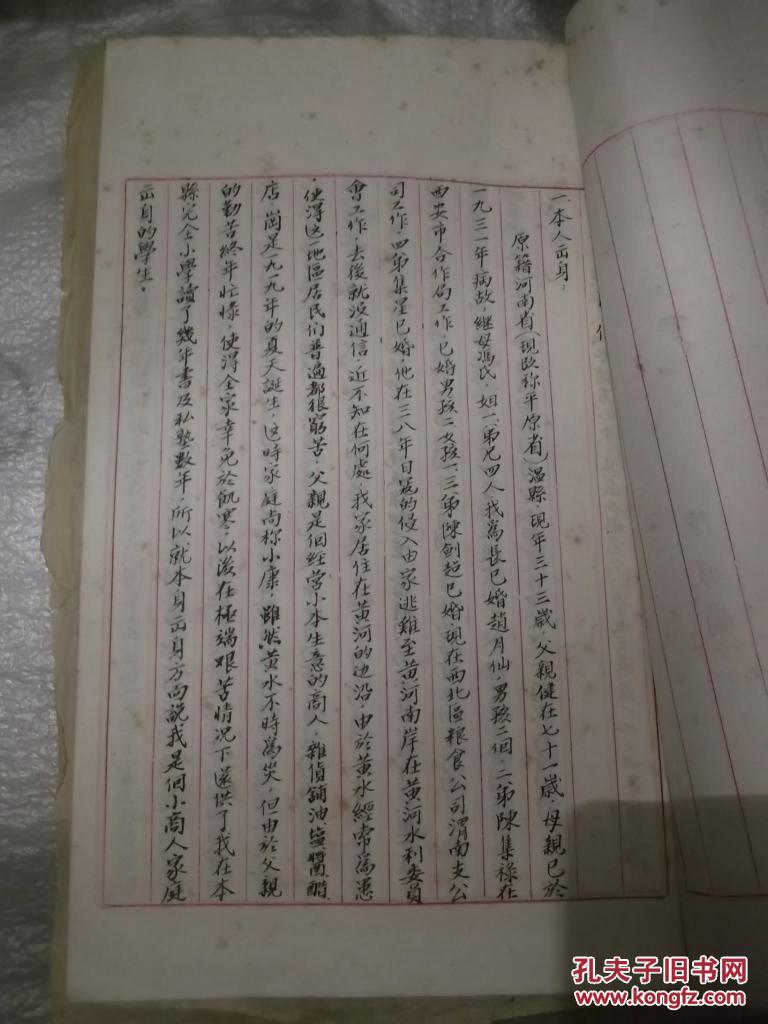 一、本人出身：
原籍河南省（現改称平原省）温縣，現年三十三歲，父親健在七十一歲，母親已於
一九三一年病故，継母馮氏，姐一、弟兄四人，我為長已婚趙月仙，男孩二個，二弟陳集禄在
西安市合作局工作，已婚男孩二女孩一，三弟陳劍超已婚，現在西北區粮食公司渭南支公
司工作，四弟集星已婚，他在三八年日寇的侵入由家逃難至黄河南岸在黄河水利委員
會工作，去後就没通信，近不知在何處，我家居住在黄河的边沿，由於黄水經常為患
，使得这一地區居民们普遍都很窮苦，父親是個經営小本生意的商人，雜貨舖油、塩、醬、醋
店，崗是一九一九年的夏天誕生，这時家庭尚称小康，雖然黄水不時為災，但由於父親
的勤苦終年忙碌，使得全家幸免於飢寒，以後在極端艰苦情况下還供了我在本
縣完全小學讀了幾年書及私塾數年，所以就本身出身方向説我是個小商人家庭
出身的學生。
孔夫子旧书网
www.kongfz.com